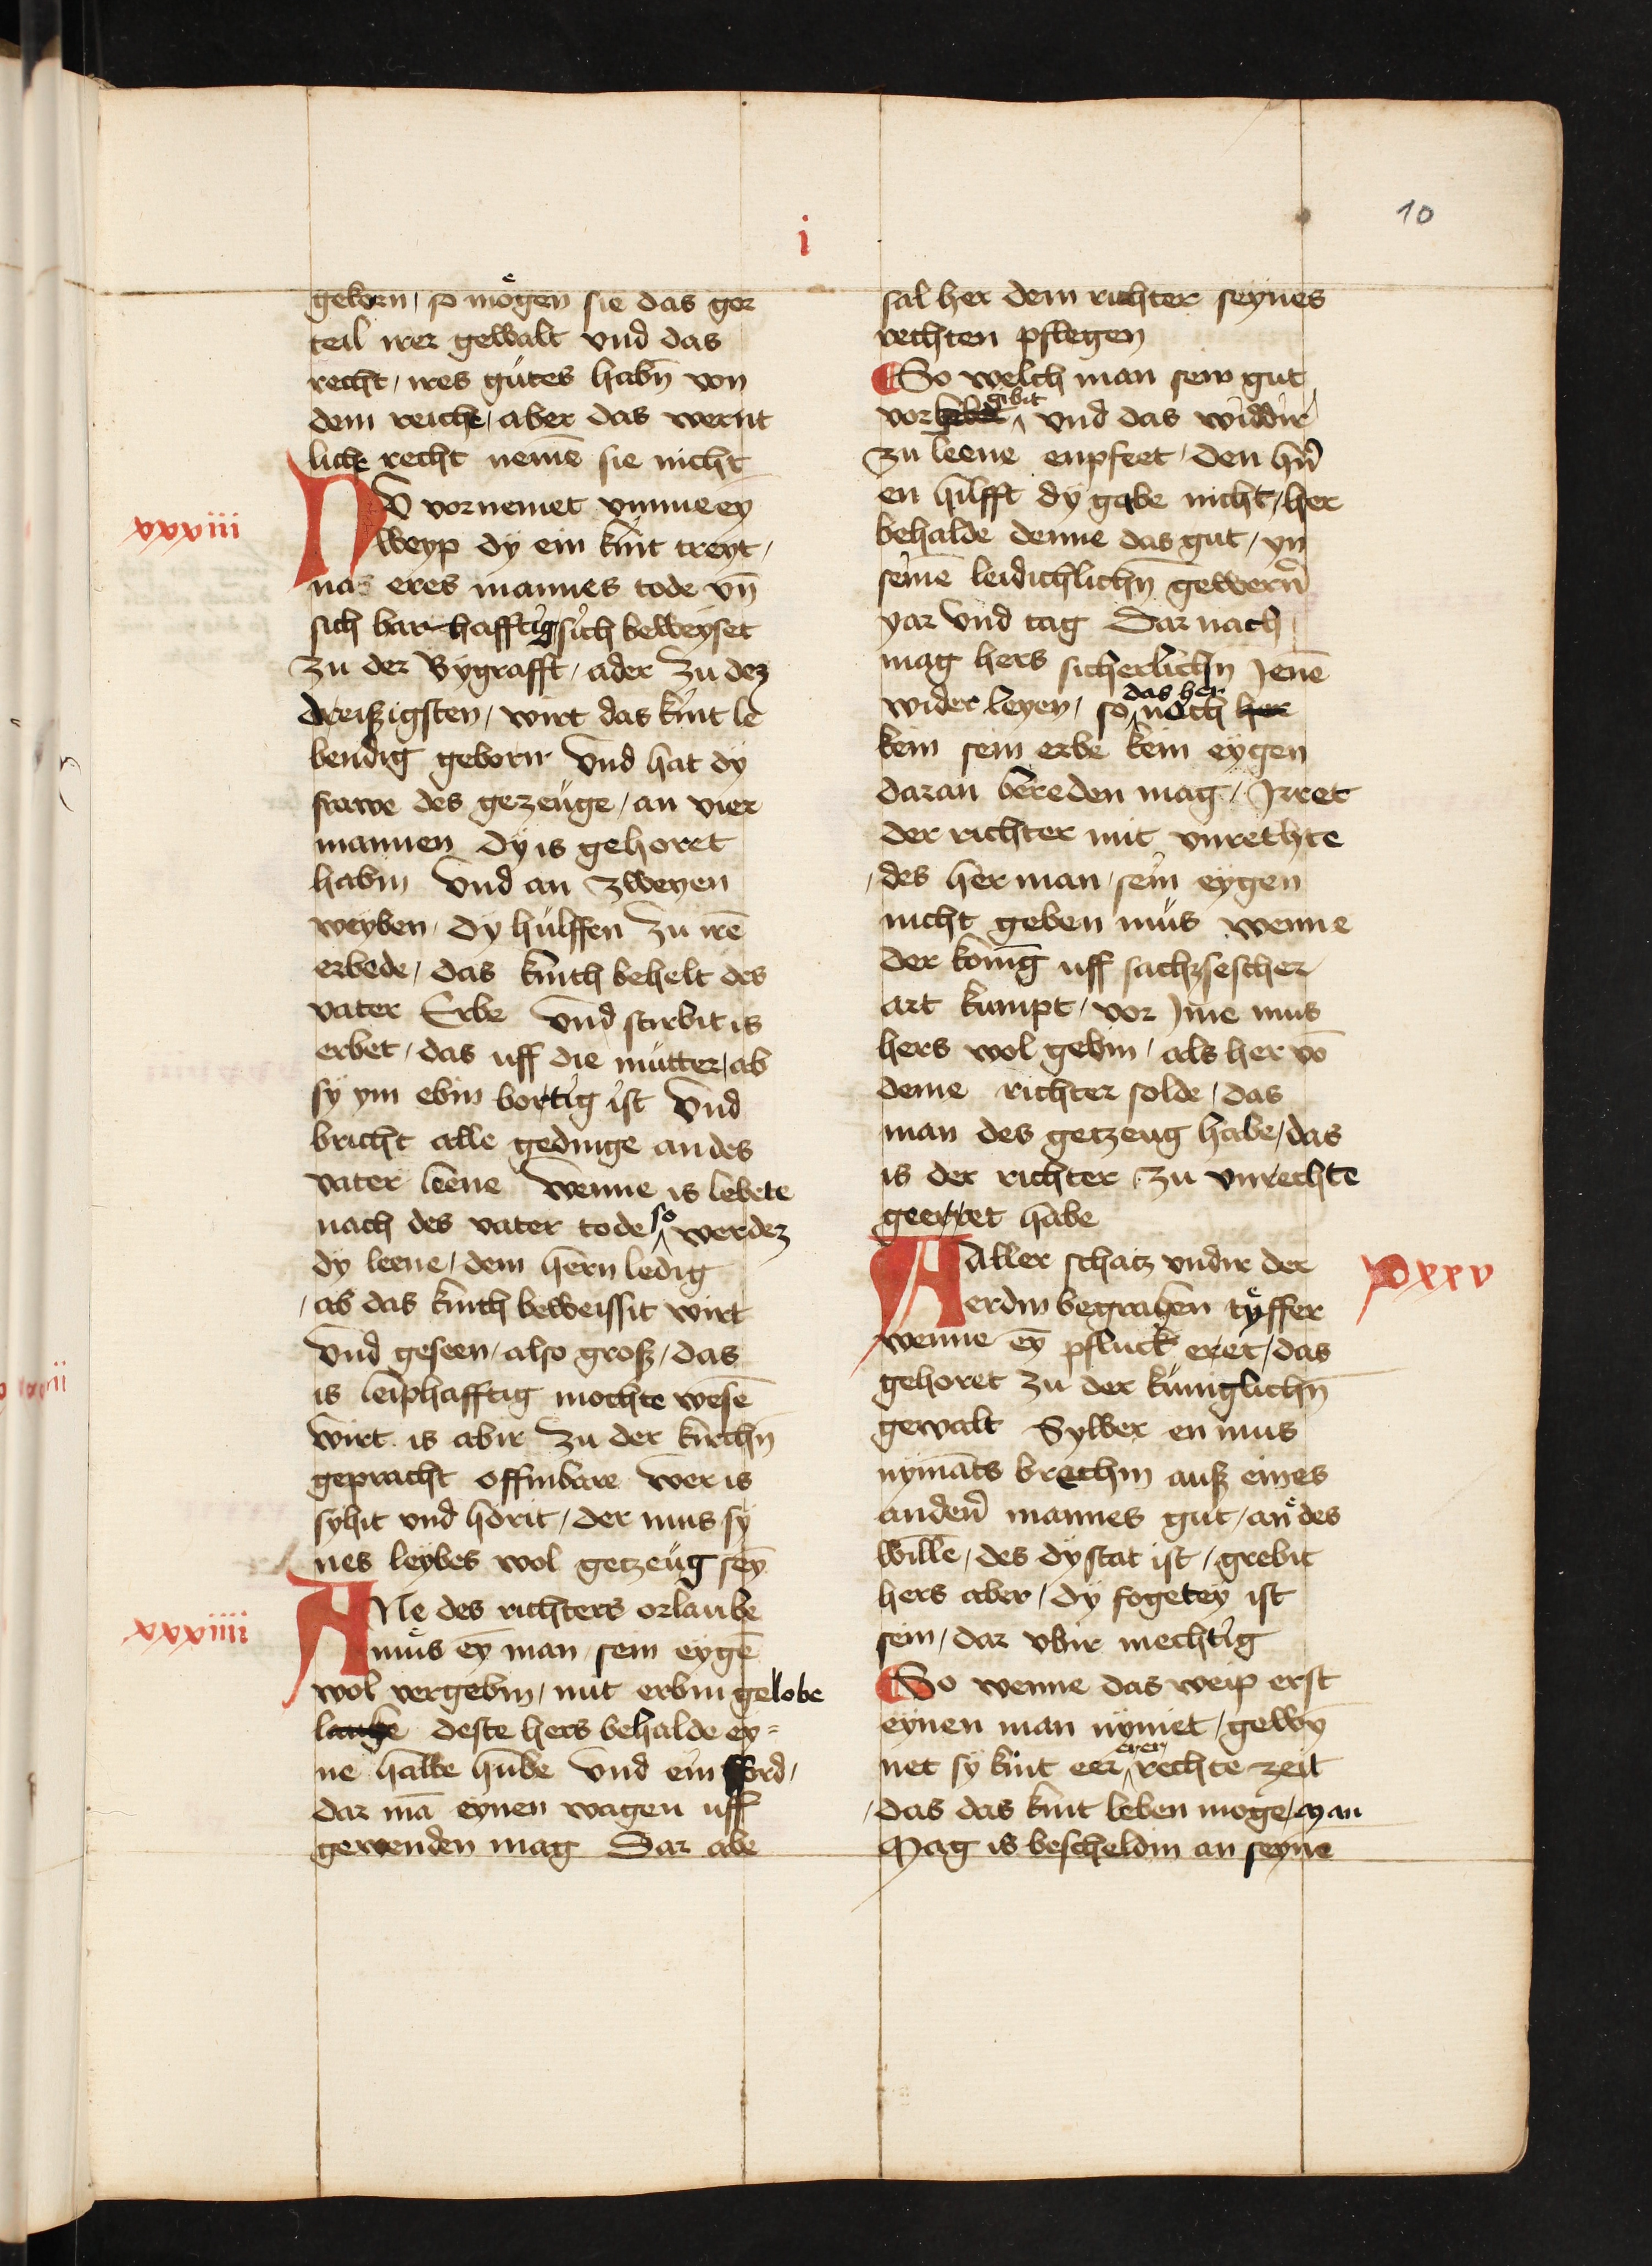 10
i
geborn / so mögen sie das ger
teil irer gewalt vnd das
recht / ires gutes habn̄ von
dem reiche / aber das wernt
liche recht nemē sie nicht
xxxiii
NV vornemet vmme ey
weyp dy ein kint treyt /
nas eres mannes tode vn̄
sich bar hafftig sich beweyset
zu der Bygrafft / ader zu dez
dreiszigsten / wirt das kint le
bendig geborn vnd hat dy
frawe des gezeuge / an vier
mannen dy is gehoret
habin vnd an zweyen
weyben / dy hulffen zu irē
erbede / das kinth behelt des
vater Erbe vnd stirbit is
erbet / das uff die mutter / ab
sy ym ebin bortig ist vnd
bricht alle gedinge an des
vater leene wenne is lebete
nach des vater tode so werdez
dy leene / dem hern ledig
/ ab das kinth beweissit wirt
vnd geseen / also grosz / das
is leiphafftig mochte wesē
wirt is abir zu der kirchn̄
gepracht offinbare wer is
syhit vnd horit / der mus sy
nes leybes wol getzeug sey
xxxiiii
ANe des richters orlaube
mus ey man sein eygē
wol vergebin / mit erbin gelobe
laube deste hers behalde ey=
ne halbe hube vnd ein word /
dar mā eynen wagen uff
gewenden mag Dar abe
sal her dem richter seynes
rechten pflegen
So welch man sein gut
vor gibit vnd das widdir
zu leene enpfeet / den hn̄
en hilfft dy gabe nicht / her
behalde denne das gut / yn
seimē leidichlichn̄ gewern̄
yar vnd tag Dar nach
mag hers sicherlichn̄ Jenē
wider leyen / so das her noch her
kein sein erbe kein eygen
daran bereden mag / Irret
der richter mit vnrechte
/ des her man / sein eygen
nicht geben mus wenne
der konig uff sachssescher
art kumpt / vor Jme mus
hers wol gebin / als her vō
deme richter solde / das
man des getzeug habe / das
is der richter / zu vnrechte
geerret habe
xxxv
AAller schatz vndir der
erdin begraben tyffer
wenne ey pfluck eret / das
gehoret zu der kuniglichn̄
gewalt Sylber en mus
nymāts brechin ausz eines
andern̄ mannes gut / an des
wille / des dy stat ist / grebit
hers aber / dy fogetey ist
sein / dar vbir mechtig
So wenne das weip erst
eynen man nymet / gewy
net sy kint eer eren rechte zeit
/ das das kint leben moge / man
Mag is bescheldin an seyne